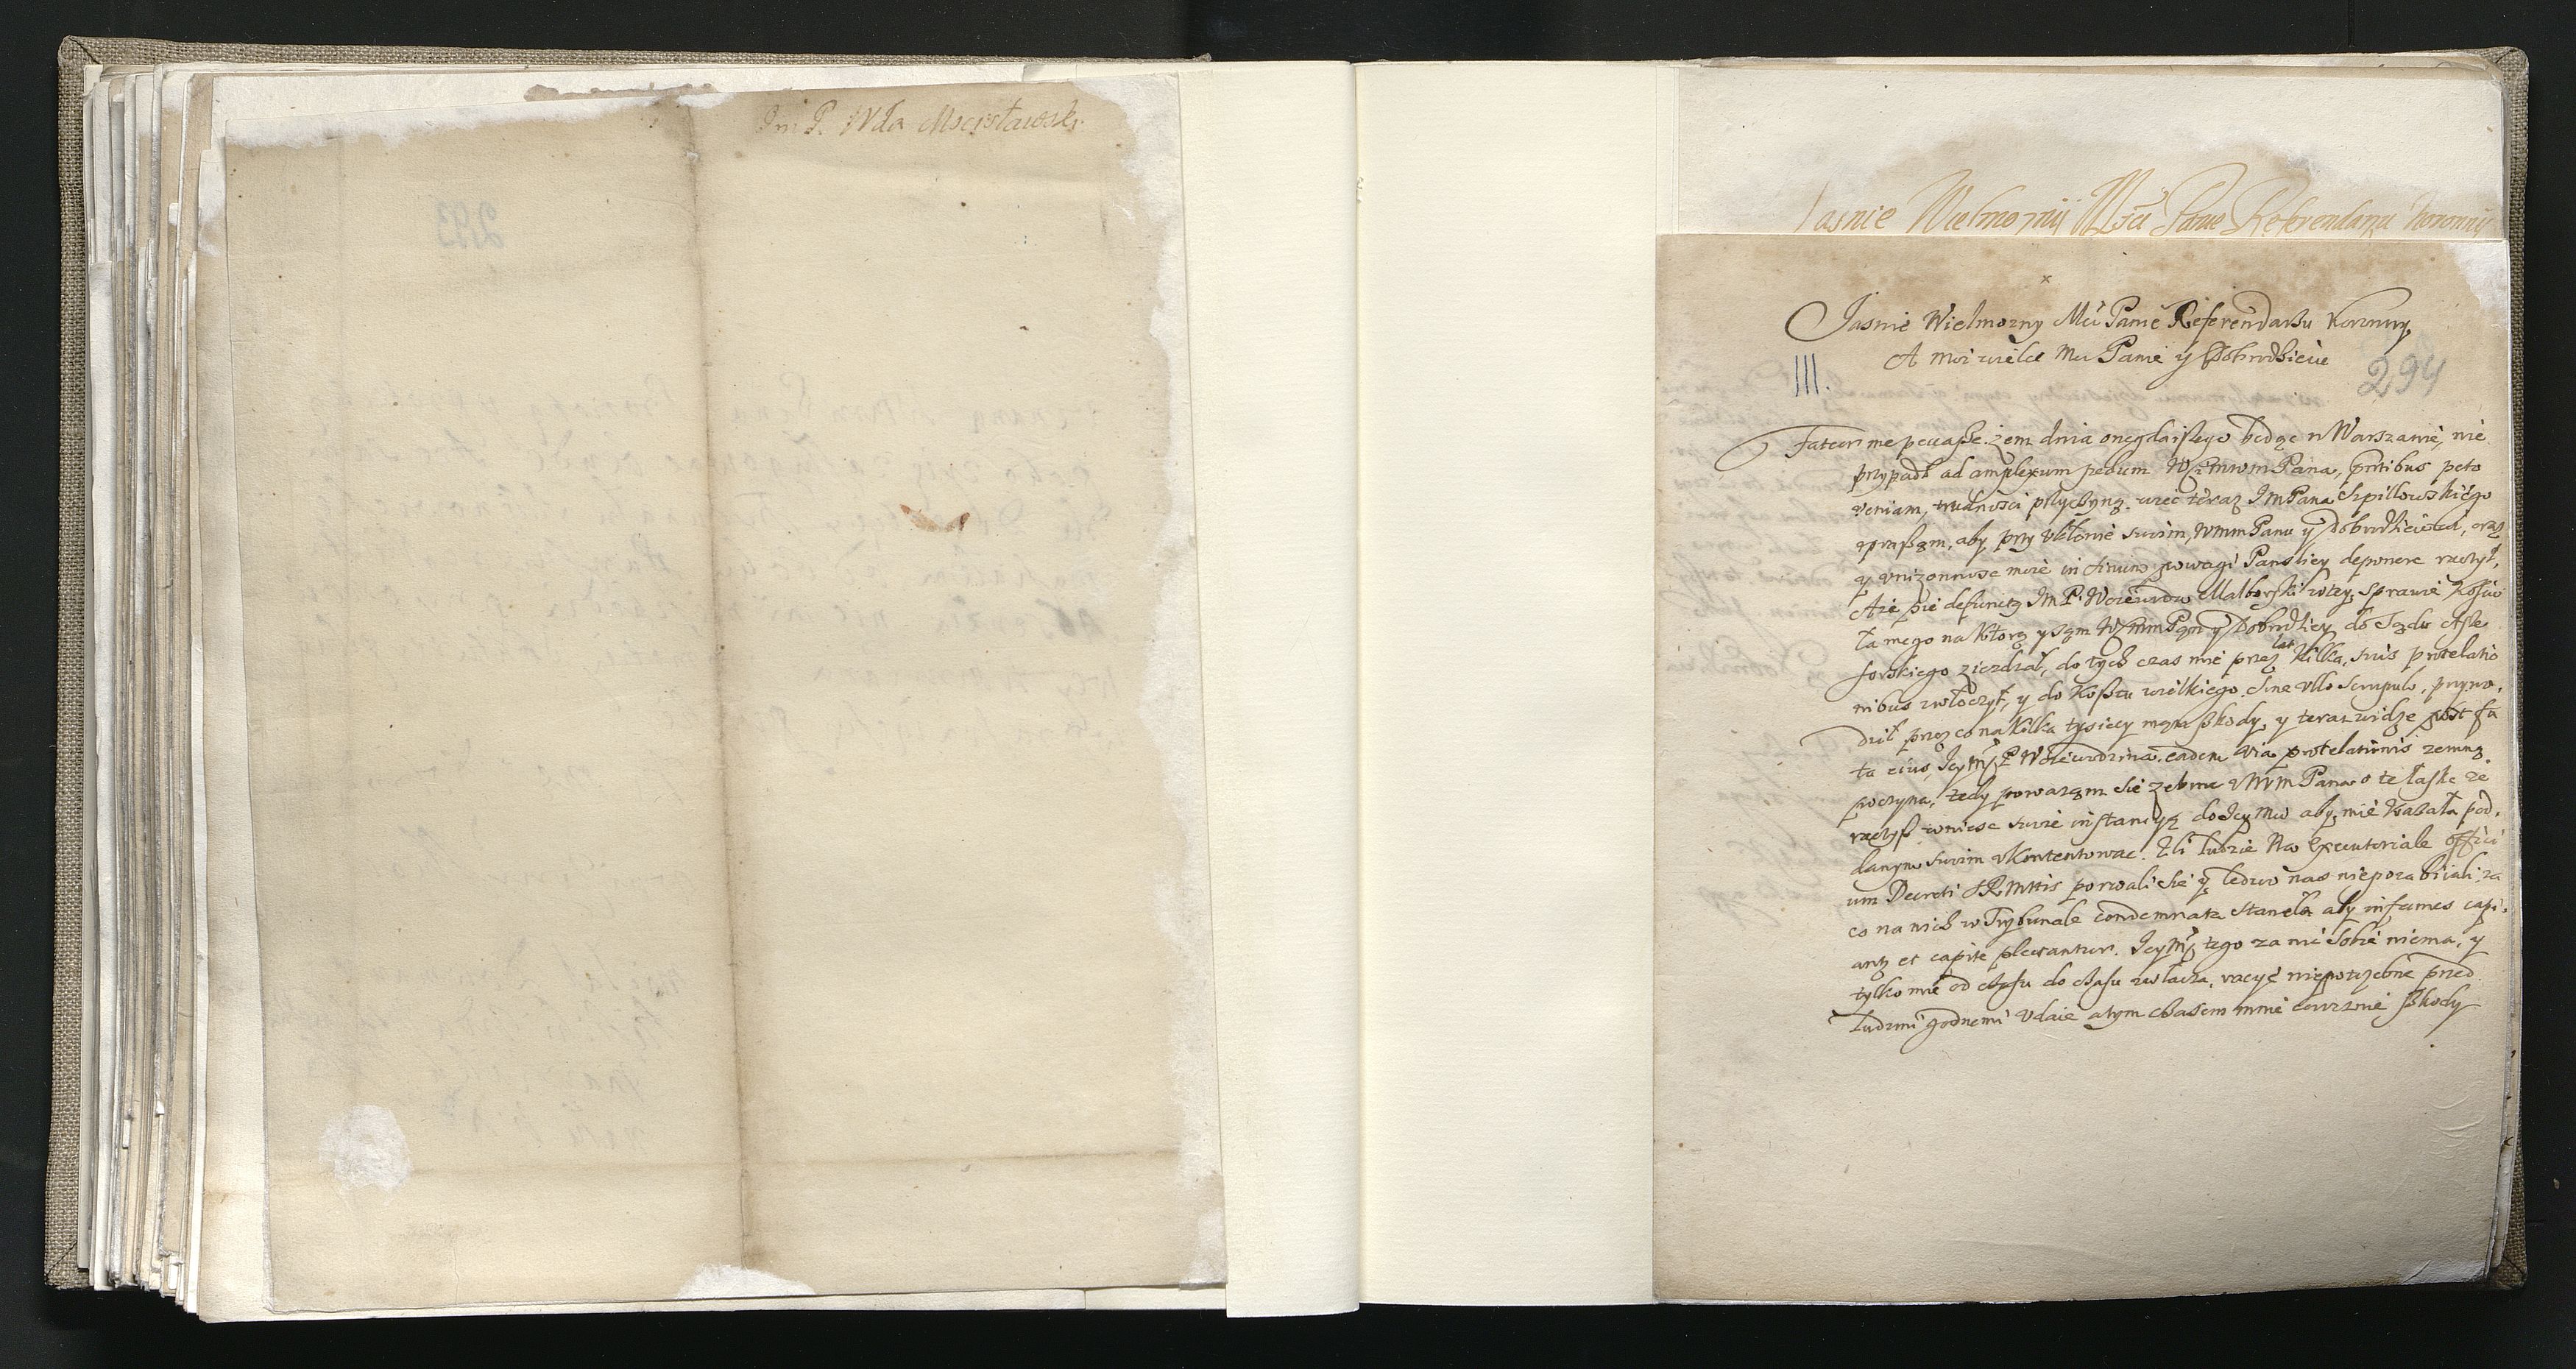 Im P. Wda Mscisławski
293
Jasnie Wielmozny Mści Panie Referendarzu Koronny
x
Jasnie Wielmozny Mći Panie Referendarzu Koronny
A moi wielce Mći Panie y Dobrodzieiu
III.
294
Fateor me peccasse. żem dnia onegdaiszego będąc w Warszawie, nie
przypadł ad amplexum pedum WMMM Pana, peto
veniam, trudnosci przyczyną. więc teraz Im Pana Szpillowskiego
upraszam, aby przy ukłonie swoim, WMM Panu y Dobrodzieiowi, oraz
y unizonnosc moię in sinum powagi Panskiey deponere raczył,
Aże się defunctus Im P. Woiewoda Malborski w tey sprawie Kościo
ła mego na ktorą y sam WMM Pan y Dobrodziey do Sądu Asse
sorskiego ziezdzał, do tych czas mie przez lat kilka, suis protelatio
nibus zwłoczył, y do kosztu wielkiego. Sine ullo scrupulo, przywo,
dził przez co na kilka tysięcy mam szkody, y teraz widzę post fa
ta eius, Iey Mć P Woiewodzina, eadem via protelationis zemną
poczyna, tedy powazam się zebrac WMM Pana o tę łaskę ze
raczysz wniesc swoię instantyą do Iey Mci aby mie kazała pod,
danym swoim ukontentowac. Zli ludzie na Executoriale offici
um Decreti SRMttis porwali się y ledwo nas niepozabiiali, za
co na nich w Trybunale condemnata stanęła aby infames capi,
antur et capite plectantur. Iey Mć tego za nic sobie niema, y
tylko mie od czasu do czasu zwłacza, racye niepotrzebne przed
ludzmi godnemi udaie a tym czasem mnie szkody